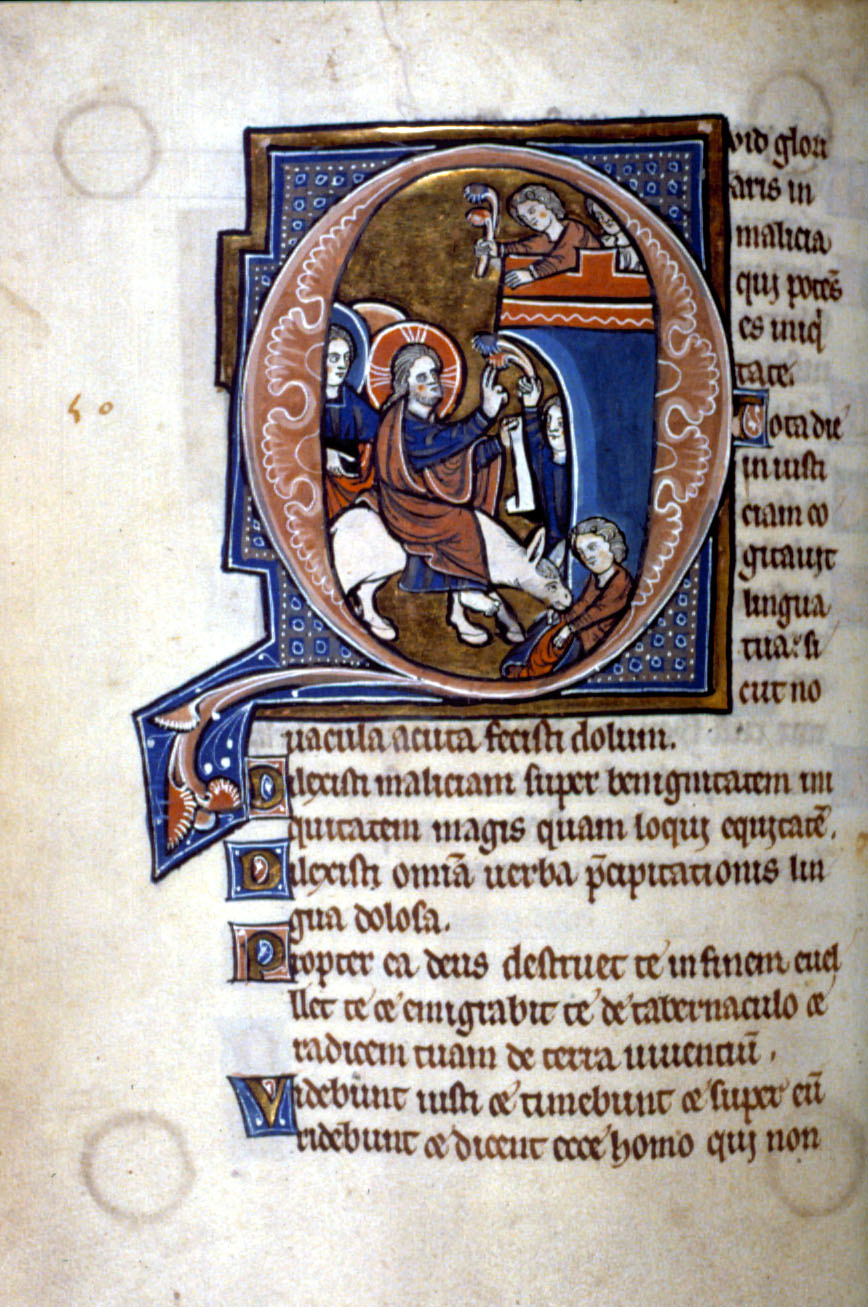 Quid glori
aris in
malicia
qui potēs
es iniq̇
tate.
Tota die
in iusti
ciam co
gitauit
lingua
tua: si
cut no
uacula acuta fecisti dolum.
Dilexisti maliciam super benignitatem ini
quitatem magis quam loqui equitatē.
Dilexisti om̄ia uerba p̄cipitationis lin
gua dolosa.
Propter ea deus destruet te in finem euel
llet te et emigrabit te de tabernaculo et
radicem tuam de terra uiuentiū.
Videbunt iusti et timebunt et super eū
ridebunt et dicent ecce homo qui non